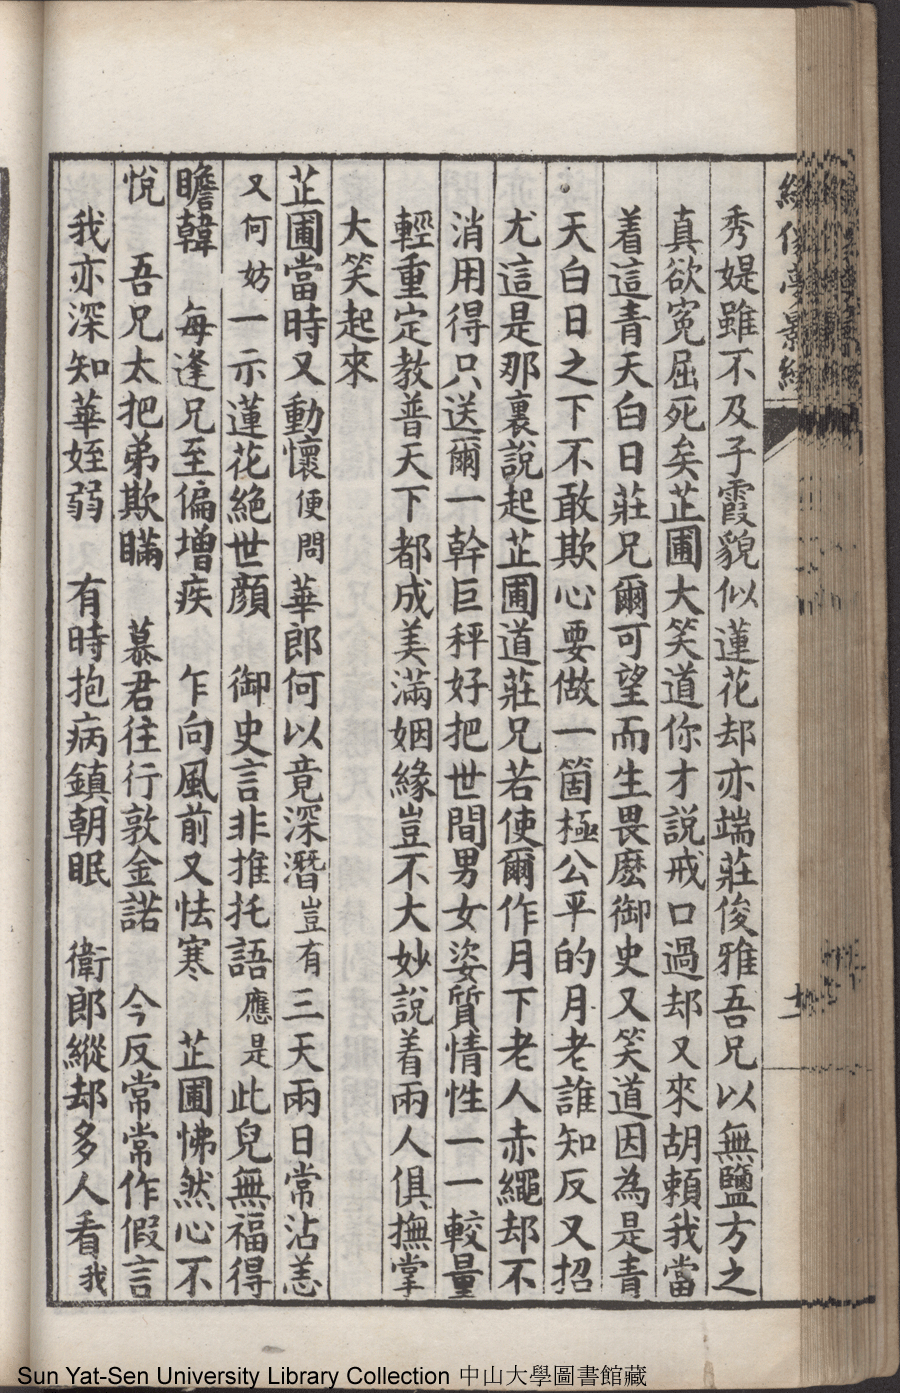 繡像夢影緣
十一
秀媞雖不及子霞貌似蓮花却亦端莊俊雅吾兄以無鹽方之
真欲寃屈死矣芷圃大笑道你才說戒口過却又來胡賴我當
着這青天白日莊兄爾可望而生畏麽御史又笑道因為是青
天白日之下不敢欺心要做一箇極公平的月老誰知反又招
尤這是那裏說起芷圃道莊兄若使爾作月下老人赤繩却不
消用得只送爾一幹巨秤好把世間男女姿質情性一一較量
輕重定教普天下都成美滿姻緣豈不大妙說着兩人俱撫掌
大笑起來
芷圃當時又動懷便問 華郎何以竟深潛豈有三天兩日常沾恙
又何妨一示蓮花絕世顏 御史言非推托語應是此兒無福得
瞻韓 每逢兄至偏增疾 乍向風前又怯寒 芷圃怫然心不
悅 吾兄太把弟欺瞞 慕君往行敦金諾 今反常常作假言
我亦深知華姪弱 有時抱病鎮朝眠 衛郎縱却多人看我
Sun Yat-Sen University Library Collection 中山大學圖書館藏